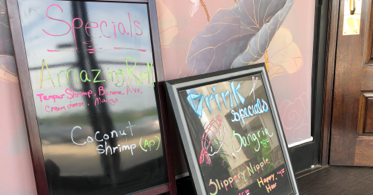 Specials
Amazing Roll
Tempur Shrimp, Banana, Rice,
Cream cheese, Mango
Coconut
Shrimp (Ap)
Drink
Specials
Sangria
Slippery Nipple
Happy
Hour